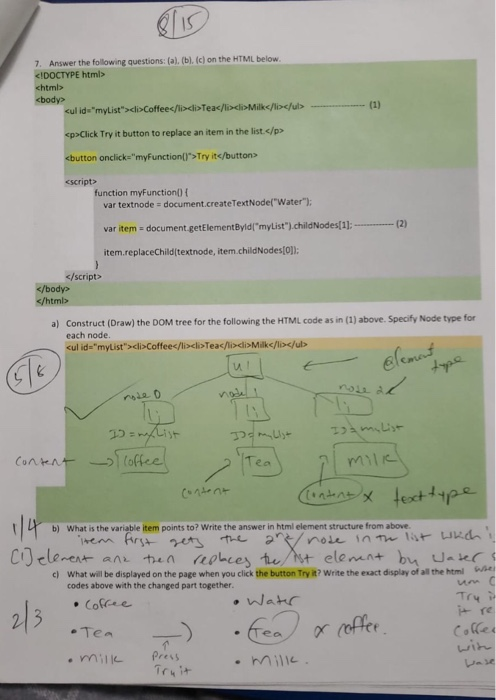 8/15
7. Answer the following questions: (a), (b), (c) on the HTML below.
<!DOCTYPE html>
<html>
<body>
<ul id="myList"><li>Coffee</li><li>Tea</li><li>Milk</li></ul> ---------------- (1)
<p>Click Try it button to replace an item in the list.</p>
<button onclick="myFunction()">Try it</button>
<script>
function myFunction() {
var textnode = document.createTextNode("Water");
var item = document.getElementById("myList").childNodes[1]; ------------ (2)
item.replaceChild(textnode, item.childNodes[0]);
}
</script>
</body>
</html>
a) Construct (Draw) the DOM tree for the following the HTML code as in (1) above. Specify Node type for
each node.
<ul id="myList"><li>Coffee</li><li>Tea</li><li>Milk</li></ul>
5/6
ul
element
type
node 0
node 1
node 2
li
li
li
ID=myList
ID=myList
ID=myList
Content
Coffee
Tea
milk
Content
Content x text type
1/4
b) What is the variable item points to? Write the answer in html element structure from above.
item first gets the 2nd node in the list which
[1] element and then replaces the 1st element by water
c) What will be displayed on the page when you click the button Try it? Write the exact display of all the html
codes above with the changed part together.
2/3
• Coffee
• Water
Try i
it re
• Tea
• Tea x coffee.
Coffee
with
Press
Try it
• milk
• milk.